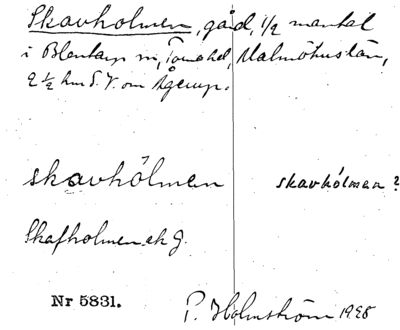 Skavholmen, gård, 1/2 mantal
i Blentarp sn, Torna hd, Malmöhus län,
2 1/2 km S.V. om Ågerup.
skavhólmen skavhólmen?
Skafholmen ek g.
Nr 5831.
P. Holmström 1928